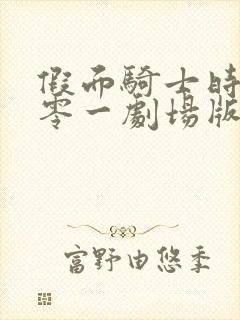 假面騎士時
零一劇場版
富野由悠季